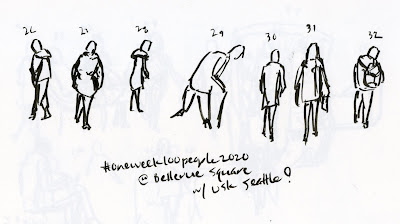 26 27 28 29 30 31 32
#oneweek100people2020
@ Bellevue Square
w/ USk Seattle!